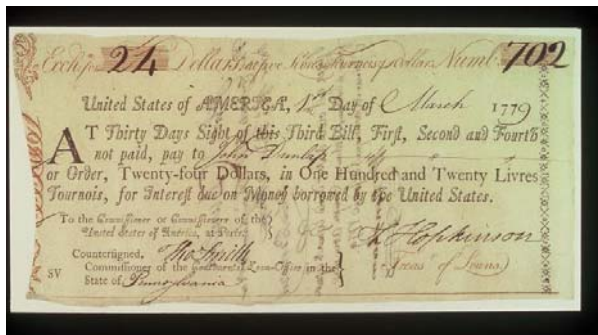 Exch: for 24 Dollars at five Livres Tournois p Dollar. Numb. 702
United States of AMERICA, 1st Day of March 1779
AT Thirty Days Sight of this Third Bill, First, Second and Fourth
not paid, pay to John Dunlap
or Order, Twenty-four Dollars, in One Hundred and Twenty Livres
Tournois, for Interest due on Money borrowed by the United States.
To the Commissioner or Commissioners of the
United States of America, at Paris.
F Hopkinson
Countersigned, Tho Smith
Treasr of Loans
Commissioner of the Continental Loan-Office in the
SV
State of Pennsylvania